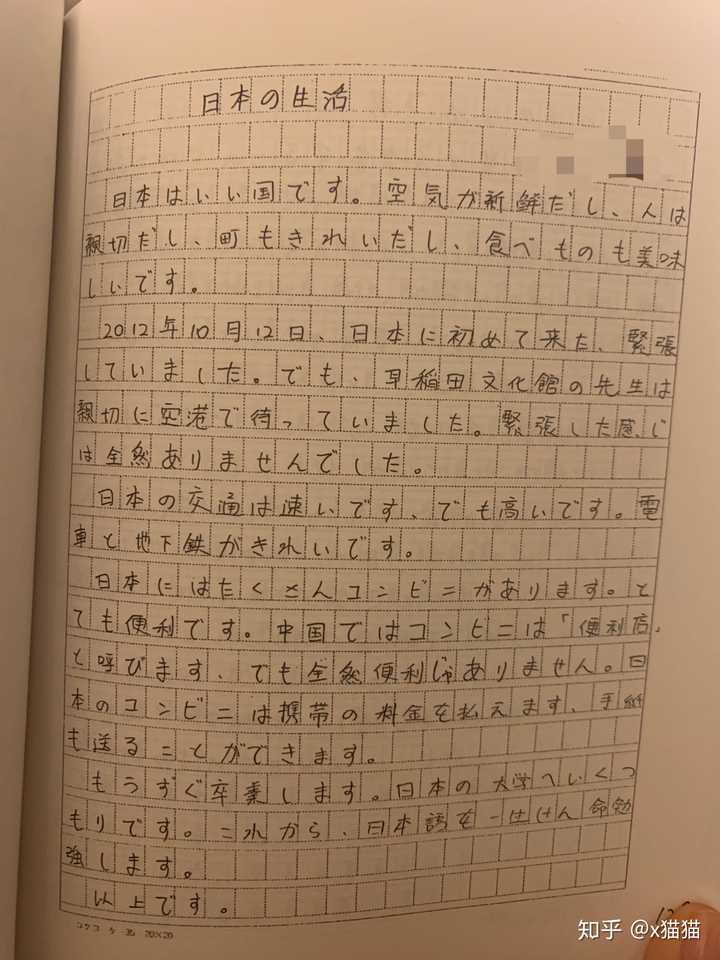 日本の生活
日本はいい国です。空気が新鮮だし、人は
親切だし、町もきれいだし、食べものも美味
しいです。
2012年10月12日、日本に初めて来た、緊張
していました。でも、早稲田文化館の先生は
親切に空港で待っていました。緊張した感じ
は全然ありませんでした。
日本の交通は速いです、でも高いです。電
車と地下鉄がきれいです。
日本にはたくさんコンビニがあります。と
ても便利です。中国ではコンビニは「便利店」
と呼びます、でも全然便利じゃありません。日
本のコンビニは携帯の料金を払えます、手紙
も送ることができます。
もうすぐ卒業します。日本の大学へいくつ
もりです。これから、日本語を一生けん命勉
強します。
以上です。
コクヨ ケ-35 20×20
知乎 @x猫猫